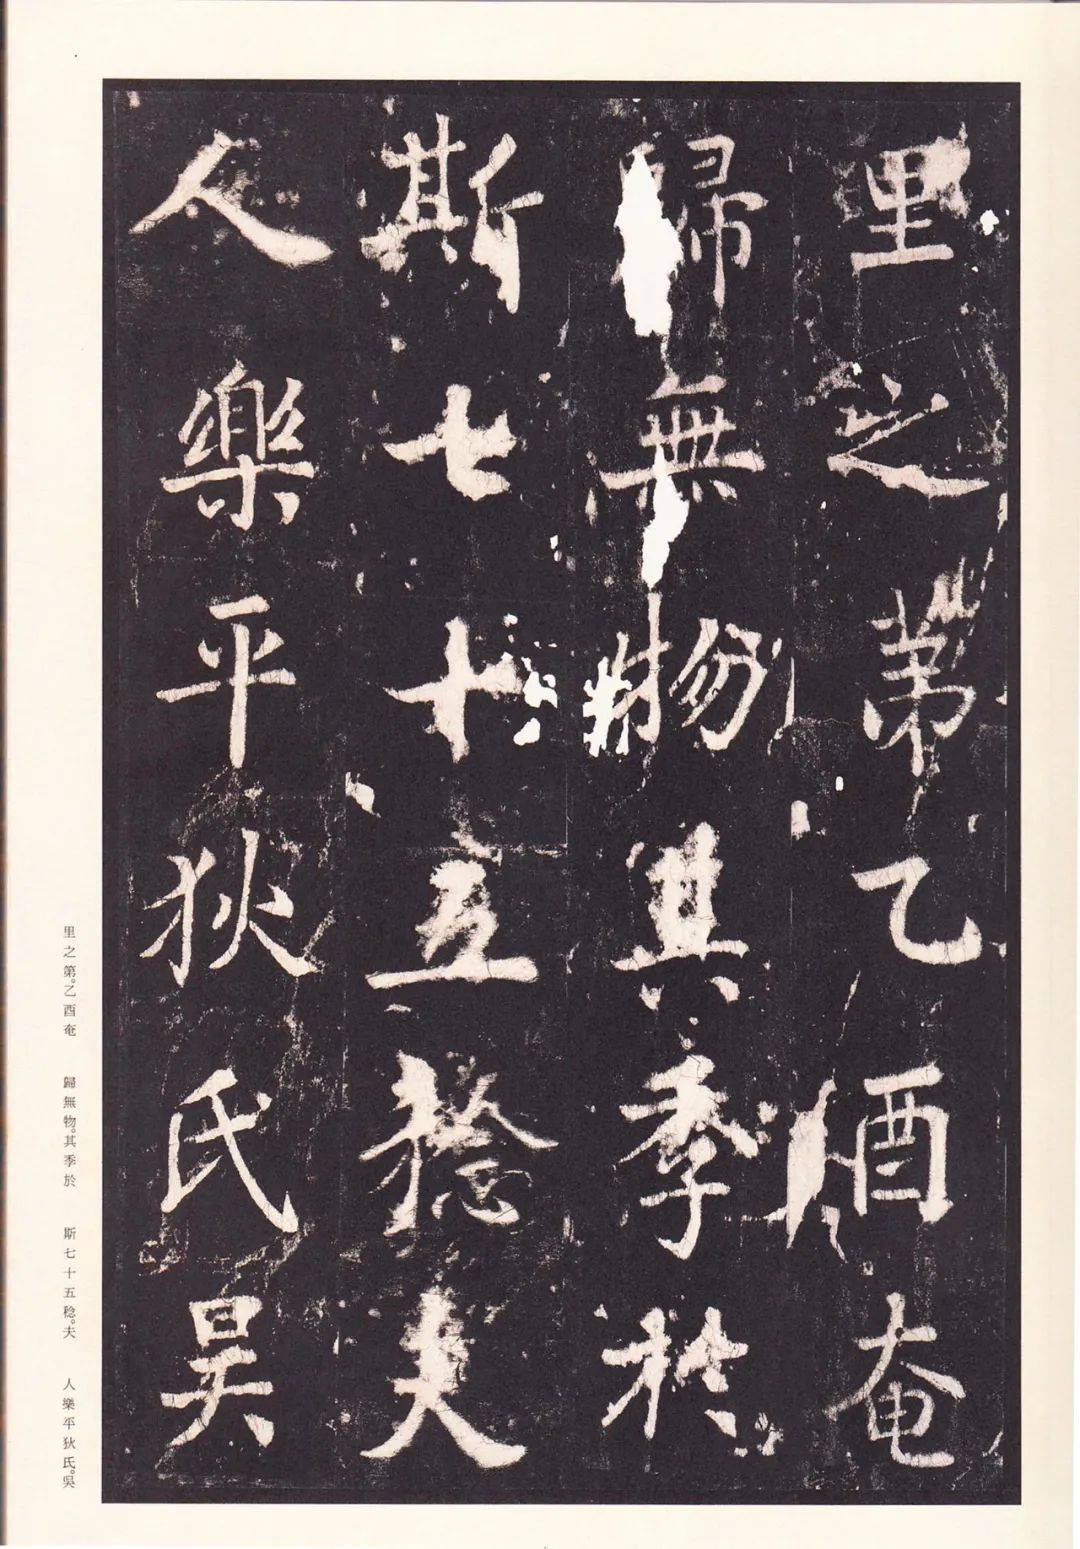 里之第乙酉奄
歸無物其季於
斯七十五稔夫
人樂平狄氏吴
里之第。乙酉奄　歸無物。其季於　斯七十五稔。夫　人樂平狄氏。吳